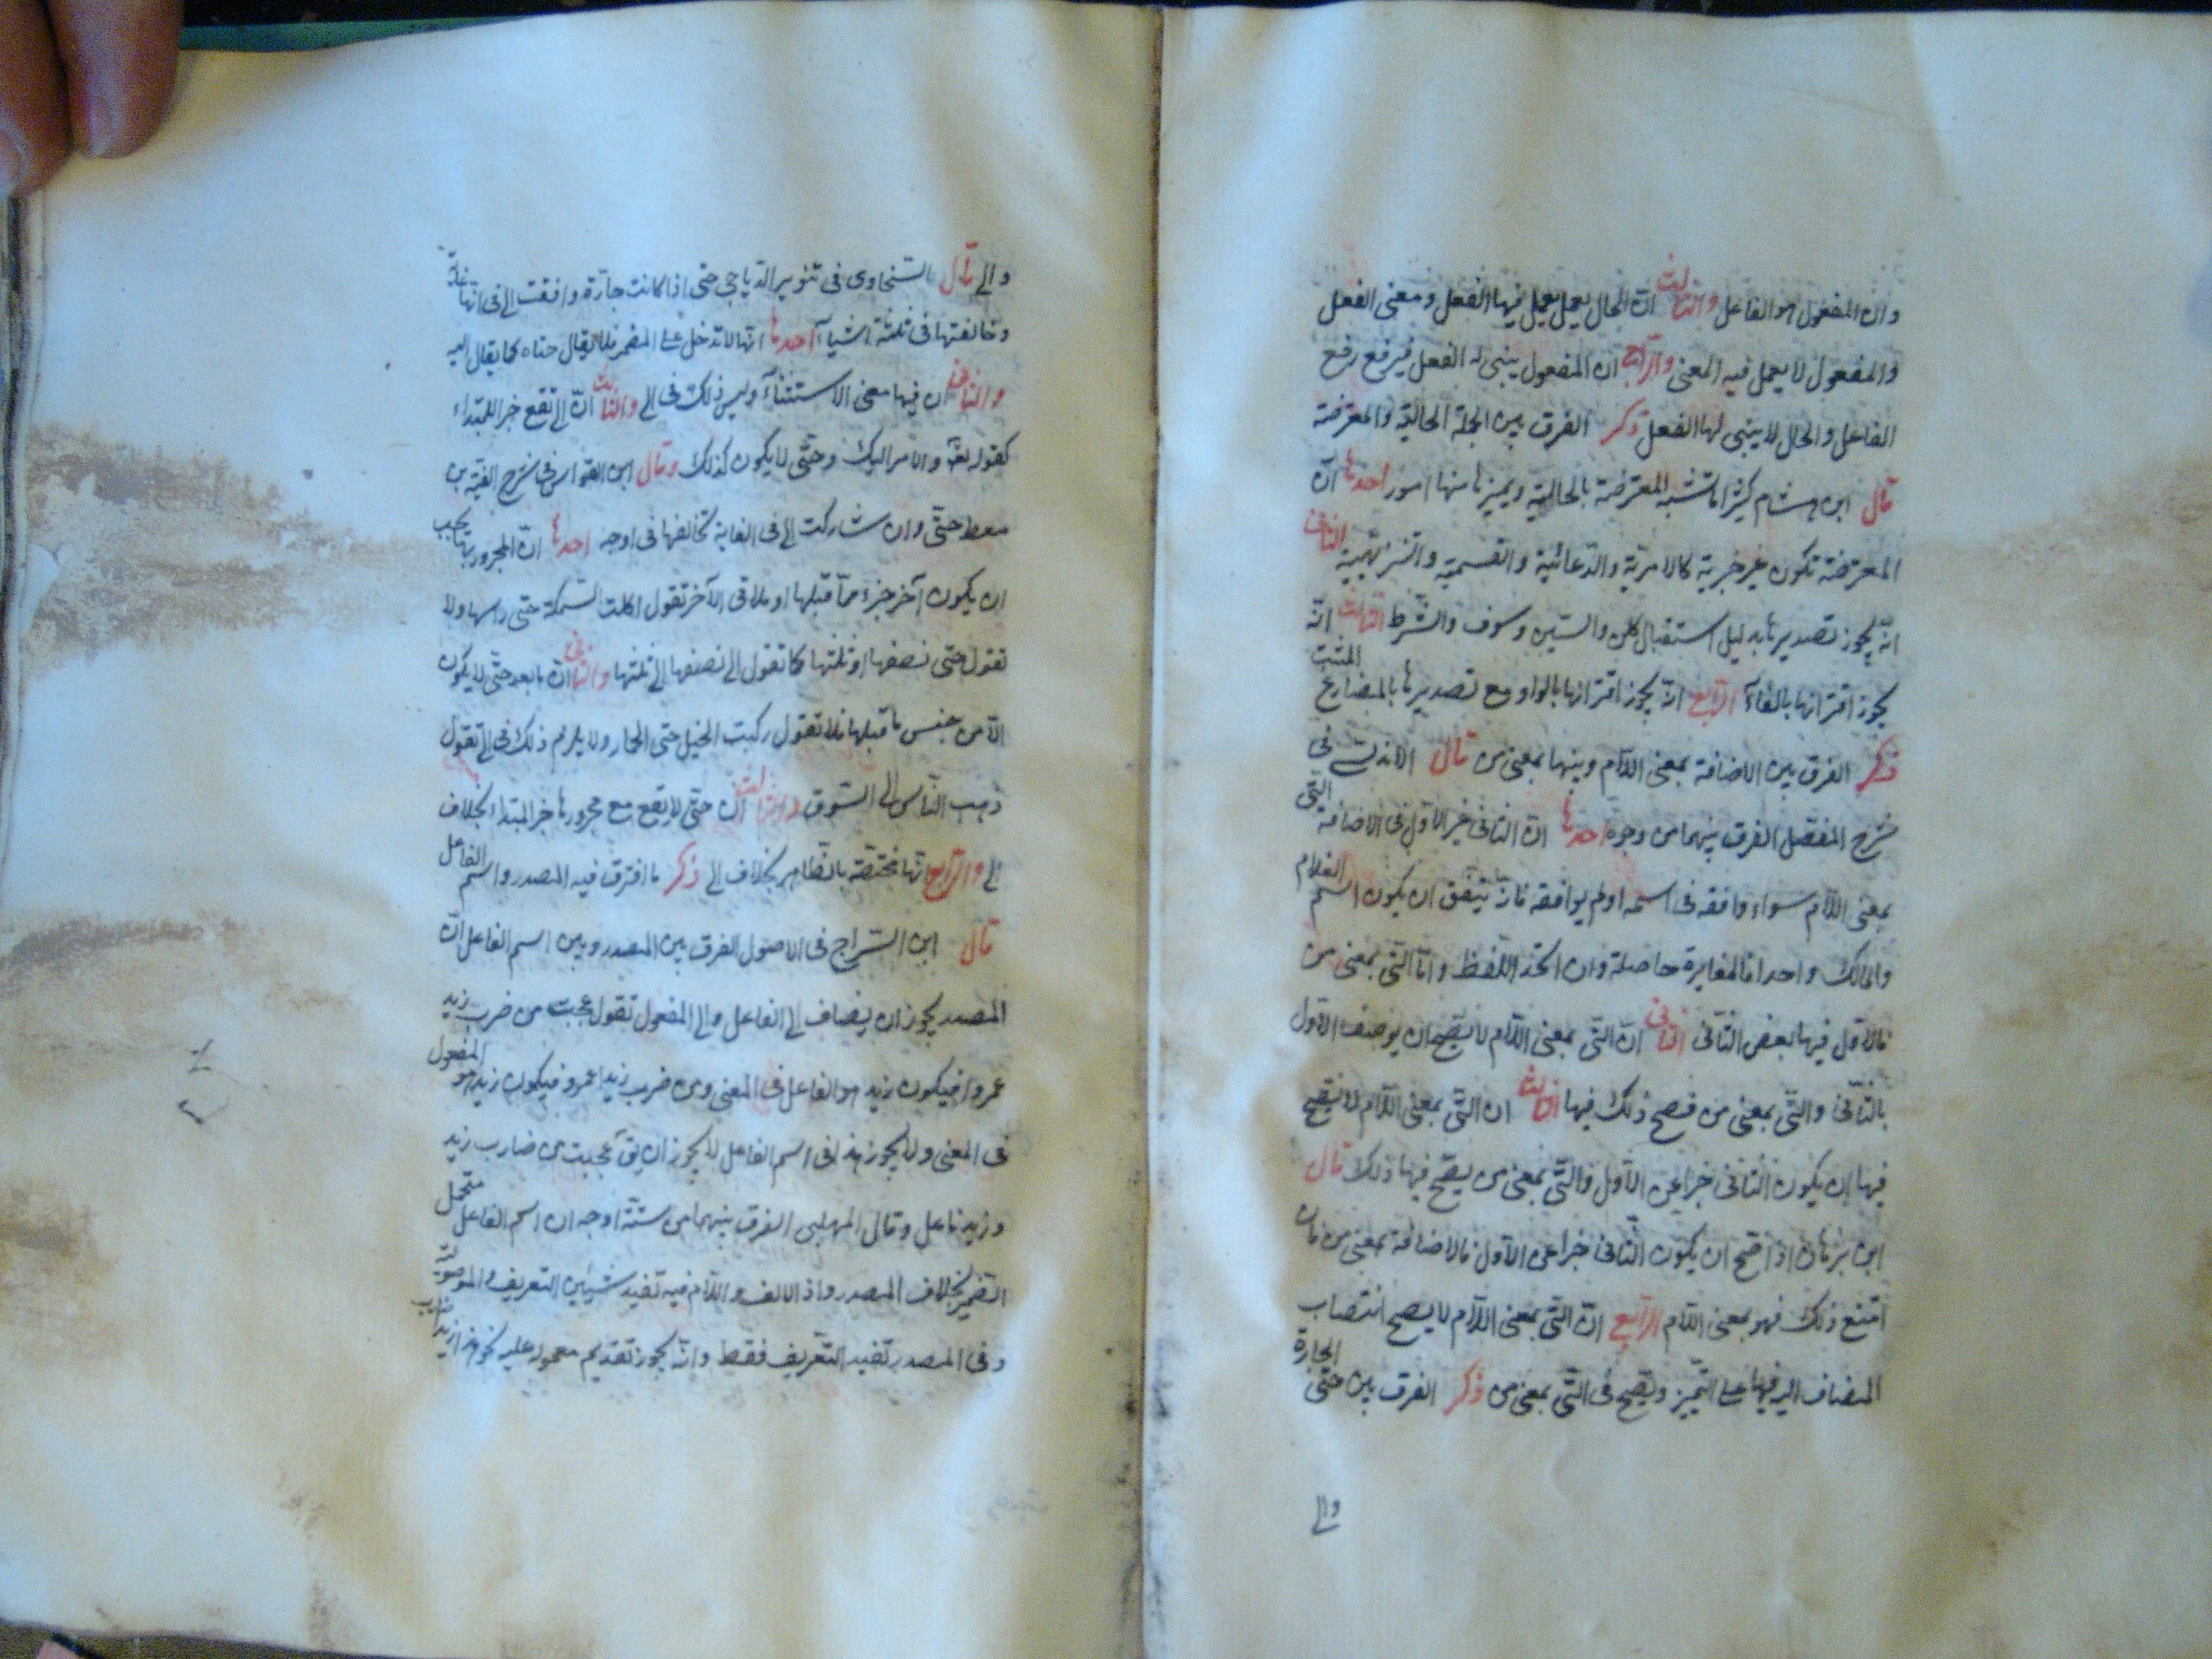 وان المفعول هو الفاعل والثالث ان الحال يعمل يعمل فيها الفعل ومعنى الفعل
والمفعول لا يعمل فيه المعنى والرابع ان المفعول يبنى له الفعل فيرفع رفع
الفاعل والحال لا يبنى لها الفعل ذكر الفرق بين الجملة الحالية والمعترضة
قال ابن هشام كثيرا ما تشبه المعترضة بالحالية ويميزها منها امور احدها ان
المعترضة تكون غير خبرية كالامرية والدعائية والقسمية والتنزيهية الثاني
انه يجوز تصديرها بدليل استقبال كلن والسين وسوف والشرط الثالث انه
يجوز اقترانها بالفاء الرابع انه يجوز اقترانها بالواو مع تصديرها بالمضارع المثبت
ذكر الفرق بين الاضافة بمعنى اللام وبينها بمعنى من قال الاندلسي في
شرح المفصل الفرق بينهما من وجوه احدها ان الثاني غير الاول في الاضافة التي
بمعنى اللام سواء وافقه في اسمه او لم يوافقه فانه يتفق ان يكون اسم الغلام
والمالك واحدا فالمغايرة حاصلة وان اتحد اللفظ واما التي بمعنى من
فالاول فيها بعض الثاني الثاني ان التي بمعنى اللام لا يصح ان يوصف الاول
بالثاني والتي بمعنى من فصح ذلك فيها الثالث ان التي بمعنى اللام لا يصح
فيها ان يكون الثاني خبرا عن الاول والتي بمعنى من يصح فيها ذلك قال
ابن برهان اذا صح ان يكون الثاني خبرا عن الاول فالاضافة بمعنى من فان
امتنع ذلك فهو بمعنى اللام الرابع ان التي بمعنى اللام لا يصح انتصاب
المضاف اليه فيها على التمييز ويصح في التي بمعنى من ذكر الفرق بين حتى الجارة
والى
والى قال السخاوى في تنوير الدياجي حتى اذا كانت جارة وافقت الى في انها غاية
وخالفتها في ثلثة اشياء احدها انها لا تدخل على المضمر فلا يقال حتاه كما يقال اليه
والثاني ان فيها معنى الاستثناء وليس ذلك في الى والثالث ان الى تقع خبرا للمبتداء
كقوله تعه والامر اليك وحتى لا يكون كذلك وقال ابن القواس في شرح الفية بن
معط حتى وان شاركت الى في الغاية تخالفها في اوجه احدها ان المجرور بها يجب
ان يكون آخر جزء مما قبلها او ملاقى الآخر تقول اكلت السمكة حتى راسها ولا
تقول حتى نصفها او ثلثها كما تقول الى نصفها الى ثلثها والثاني ان ما بعد حتى لا يكون
الا من جنس ما قبلها فلا تقول ركبت الخيل حتى الحمار ولا يلزم ذلك في الى تقول
ذهب الناس الى السوق والثالث ان حتى لا يقع مع مجرورها خبر المبتداء بخلاف
الى والرابع انها مختصة بالظاهر بخلاف الى ذكر ما افترق فيه المصدر واسم الفاعل
قال ابن السراج في الاصول الفرق بين المصدر وبين اسم الفاعل ان
المصدر يجوز ان يضاف الى الفاعل والى المفعول تقول عجبت من ضرب زيد
عمروا فيكون زيد هو الفاعل في المعنى ومن ضرب زيدا عمرو فيكون زيد هو المفعول
في المعنى ولا يجوز هذا في اسم الفاعل لا يجوز ان يق عجبت من ضارب زيد
وزيد فاعل وقال المهلبي الفرق بينهما من ستة اوجه ان اسم الفاعل متحمل
الضمير بخلاف المصدر واذ الالف واللام فيه تفيد شيئين التعريف والموصولية
وفي المصدر تفيد التعريف فقط وانه يجوز تقديم معموله عليه نحو هذا زيدا ضارب